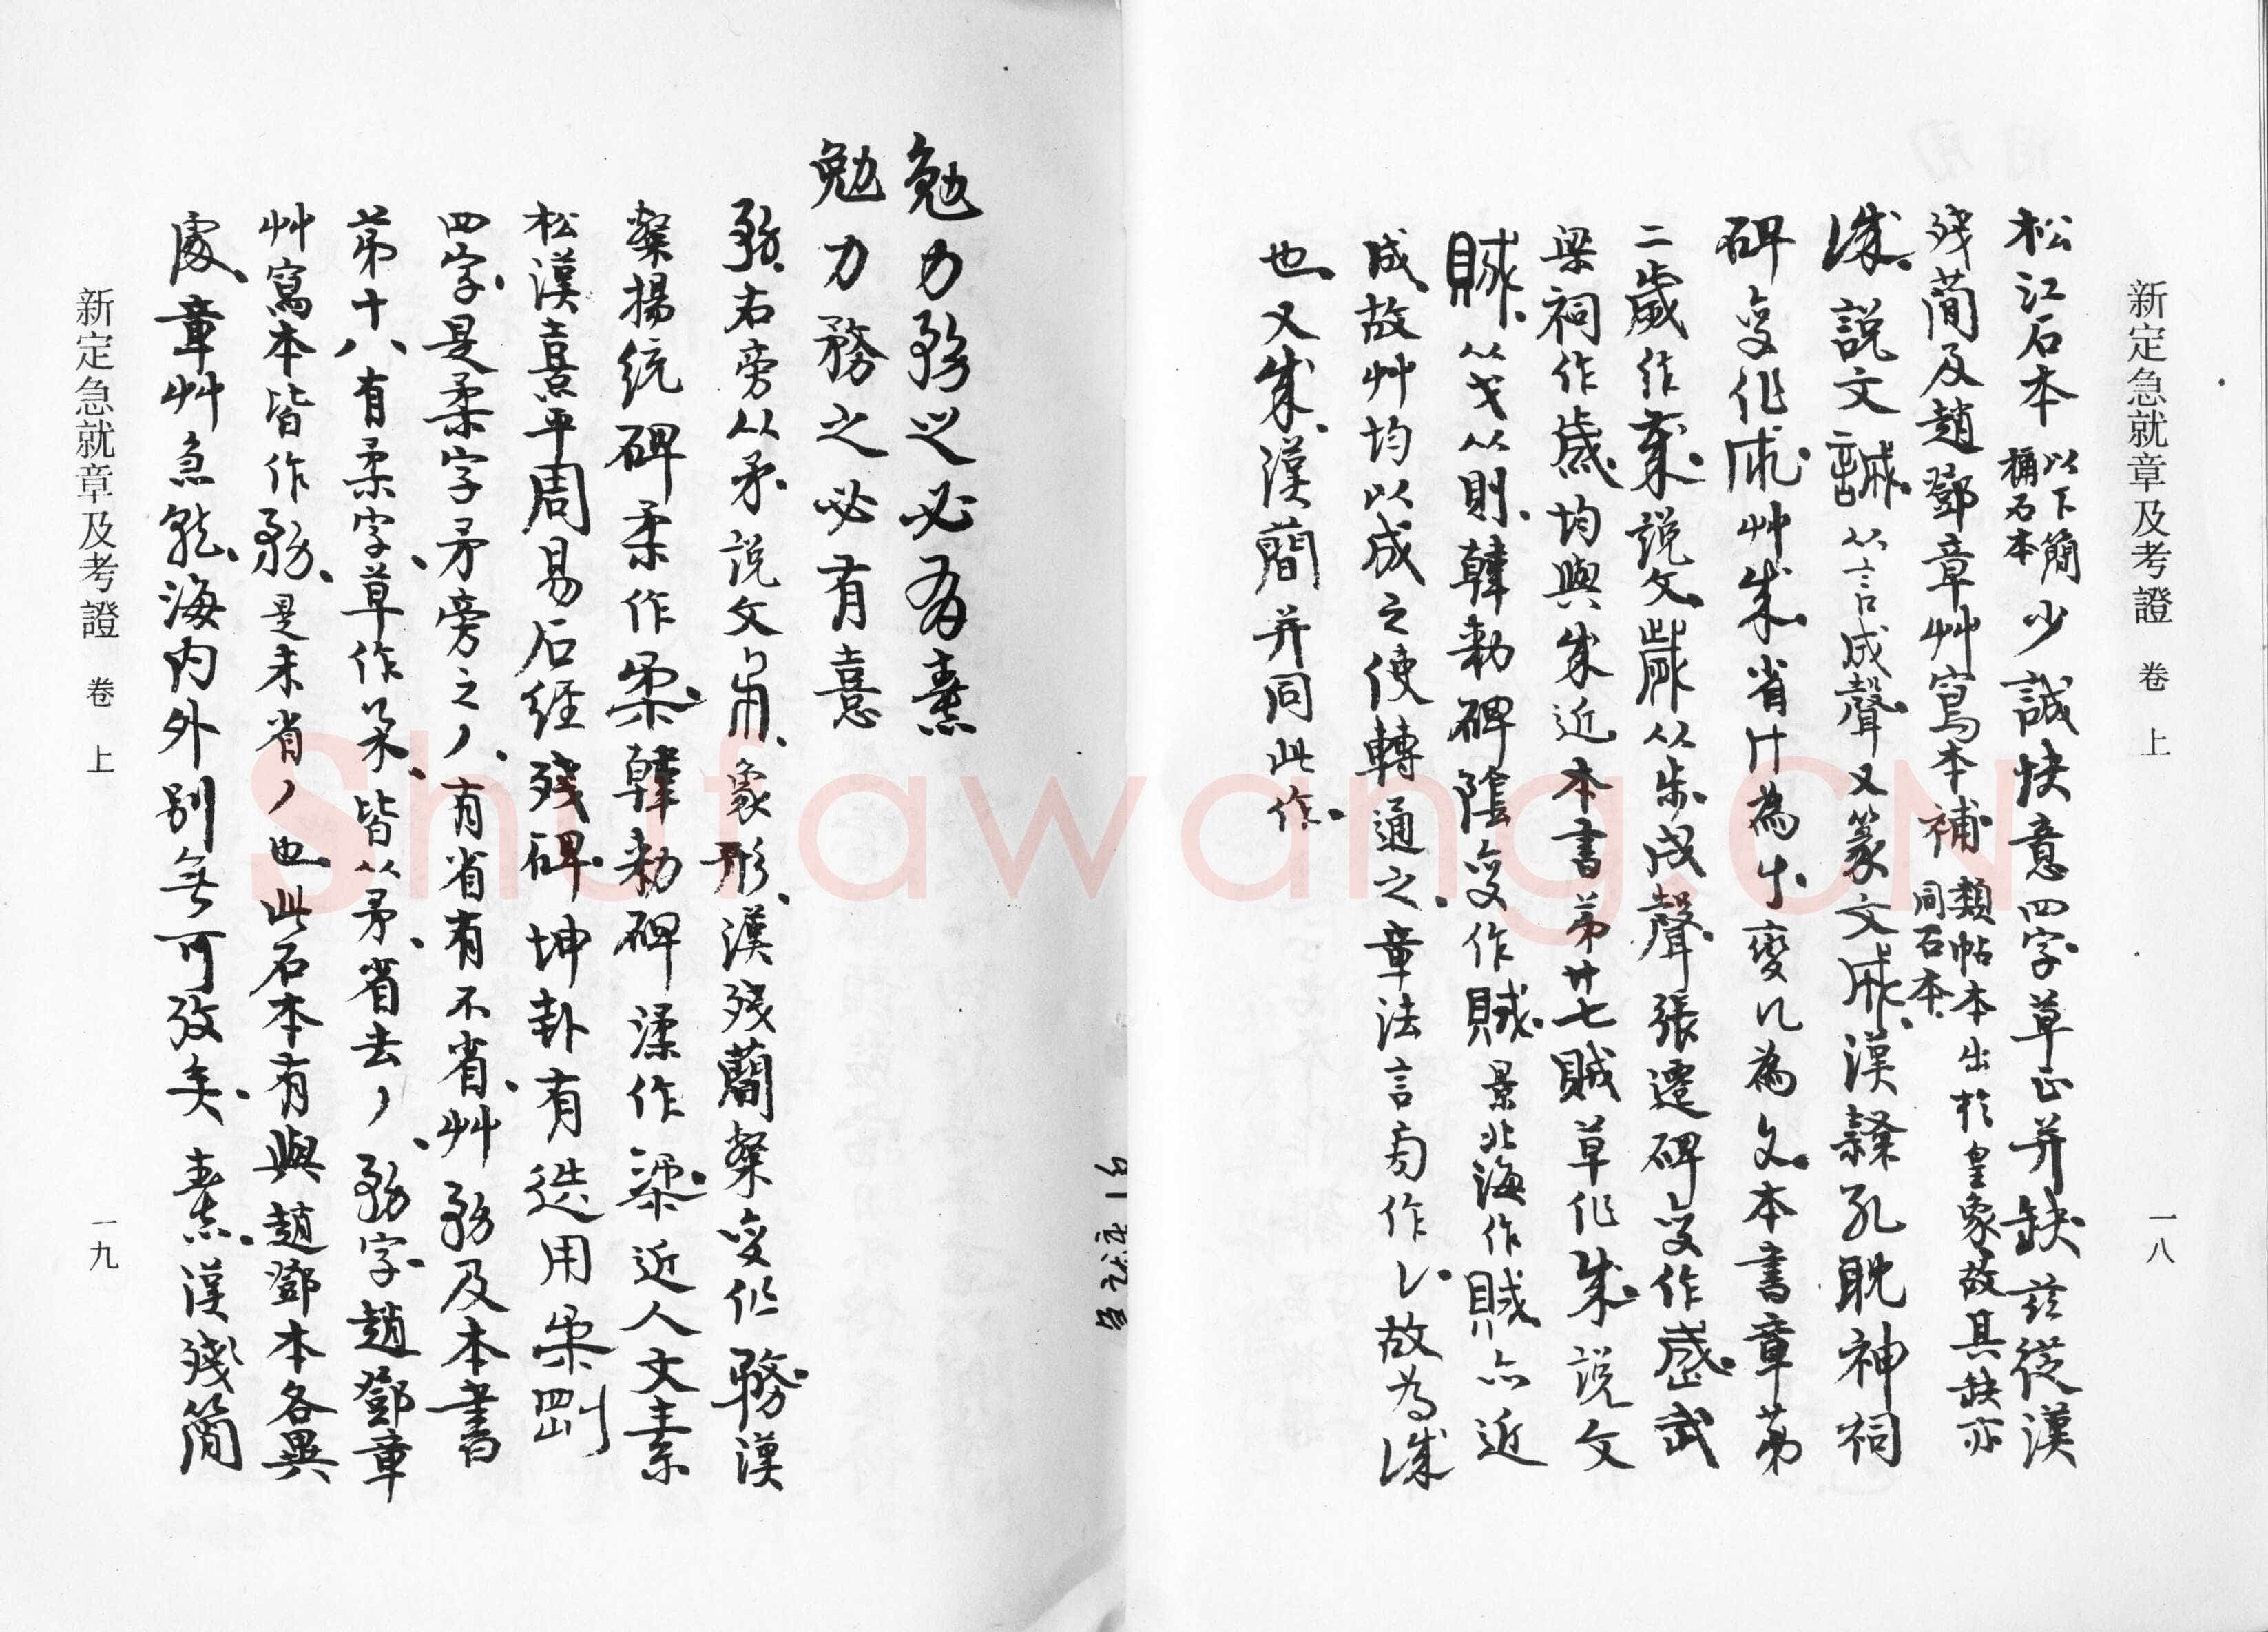 新定急就章及考證 卷上 一八
松江石本以下簡稱石本少誠快意四字草正并缺茲從漢
殘蕳及趙鄧章艸寫本補類帖本出於皇象故其缺亦同石本
誠說文誠从言成聲又篆文成漢隸孔耽神祠
碑變作成艸省廾為变几為文本書章苐
二歲作說文歲从步戌聲張遷碑变作歲武
梁祠作歲均與近本書苐廿七賊草作說文
賊从戈从則韓勑碑陰变作賊景北海作賊亦近
成故艸均以成之使轉通之章法言旁作故為誠
也又漢蕳并同此作
勉力務之必有憙
勉力務之必有憙
務右旁从矛說文象形漢殘蕳變作務漢
楊統碑柔作韓勑碑渘作近人文素
松漢熹平周易石經殘碑坤卦有迭用柔剛
四字是柔字矛旁之丿有省有不省艸務及本書
苐十八有柔字草作皆从矛省去丿務字趙鄧章
艸寫本皆作務是未省丿也此石本有與趙鄧本各異
處章艸急就海内外別無可攷矣憙漢殘簡
新定急就章及考證 卷上 一九